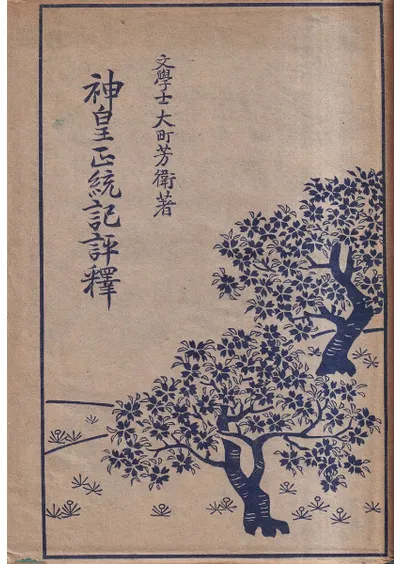 文學士 大町芳衛著
神皇正統記評釋